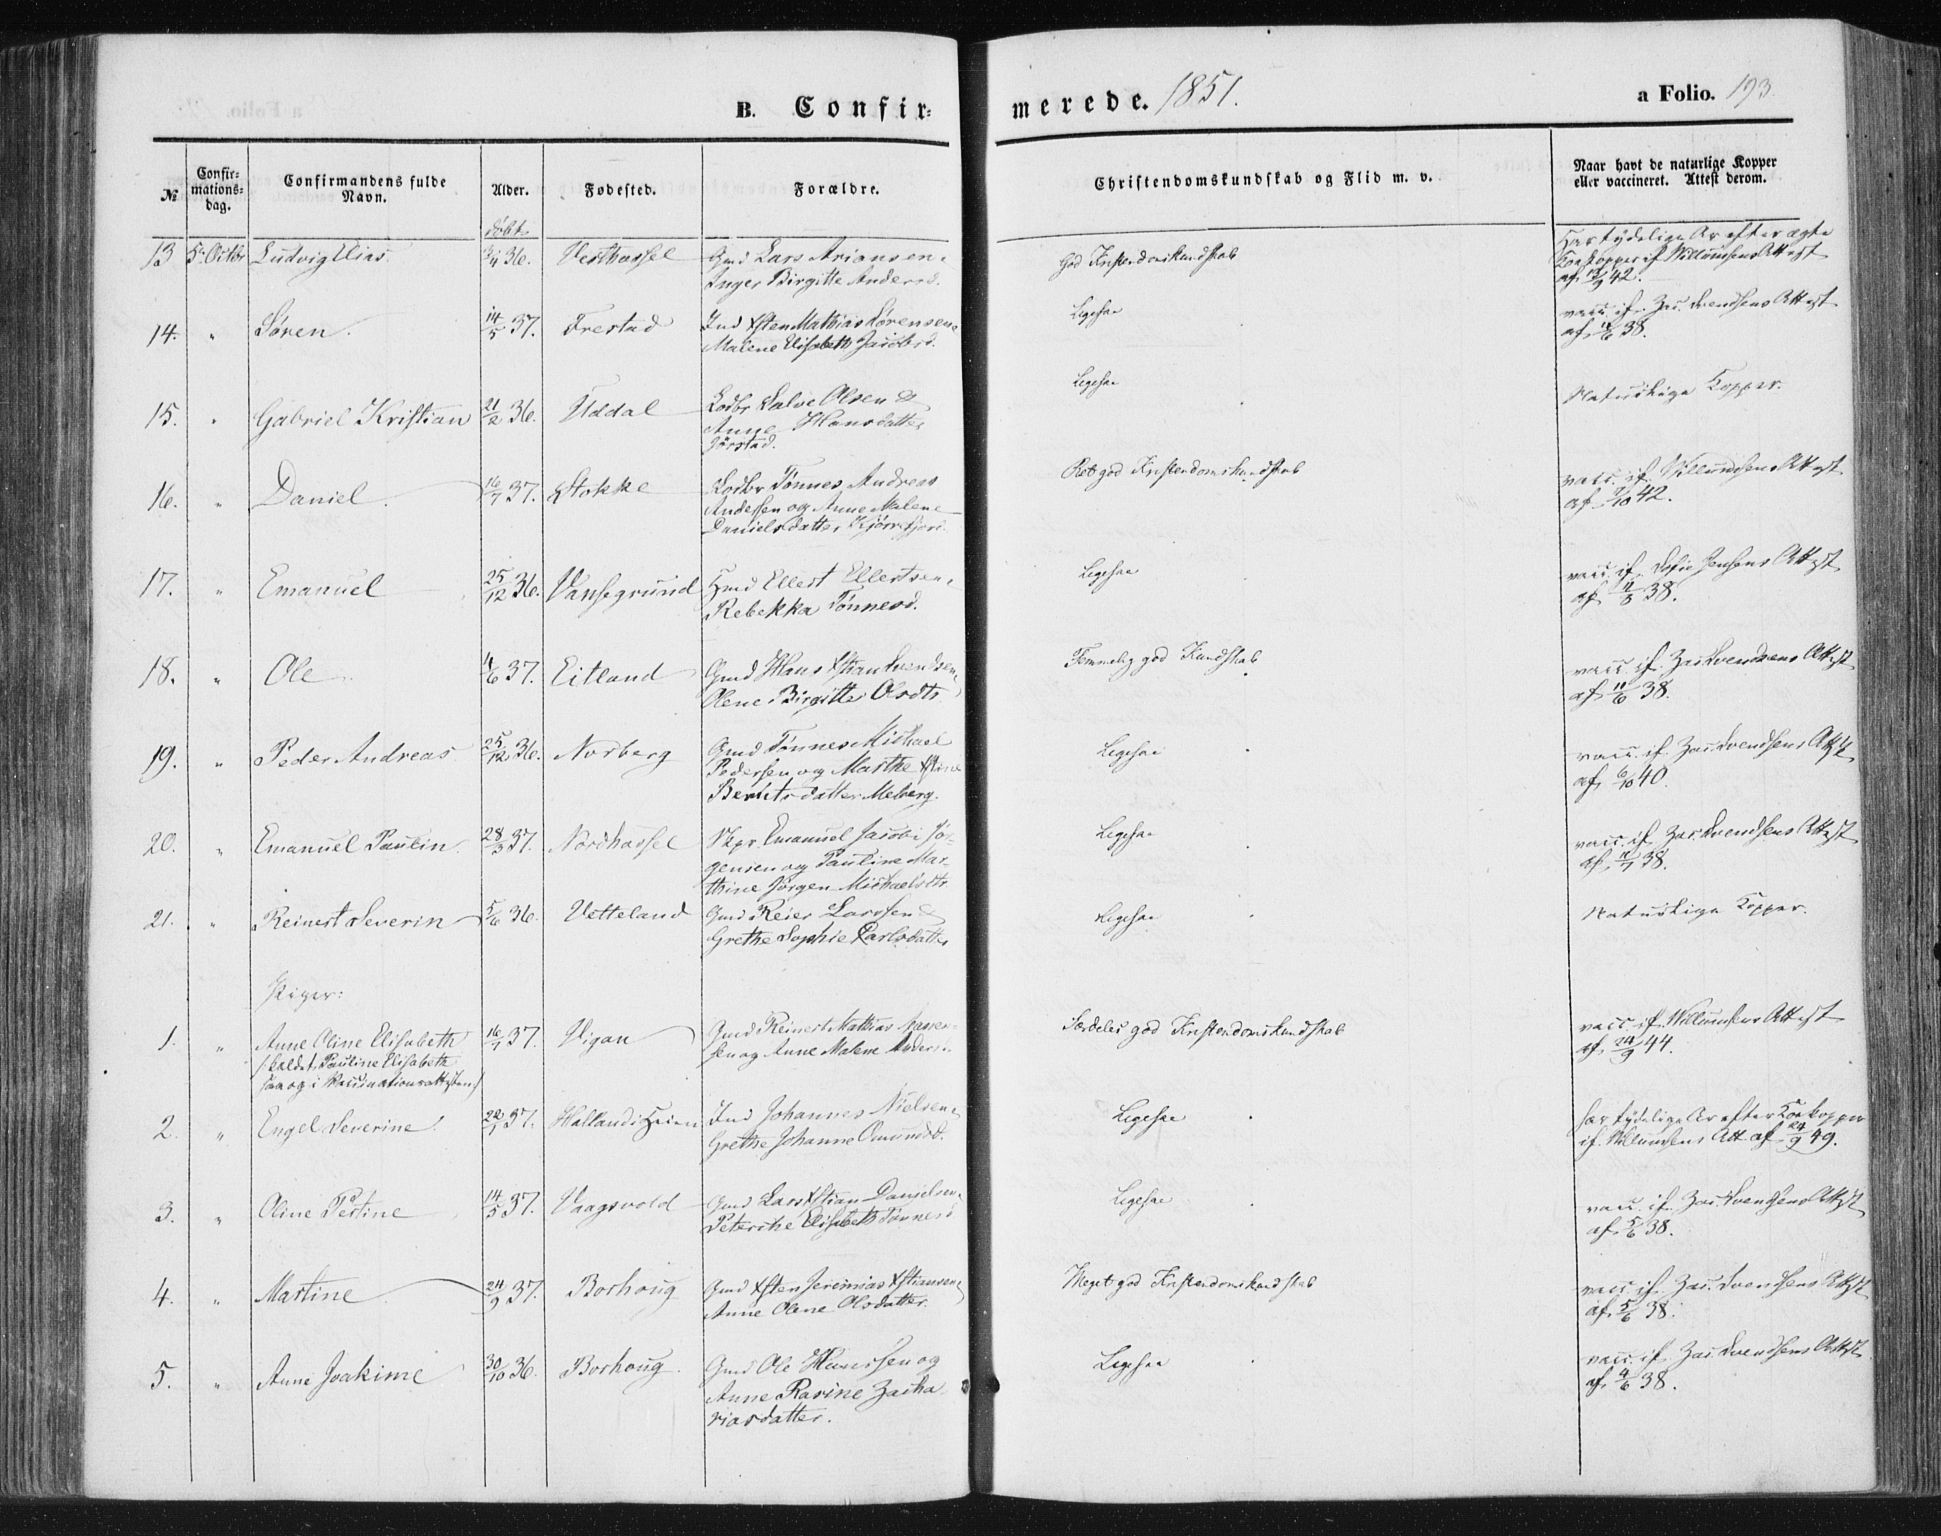 B. Confir=
merede. 1851.
a Folio. 193
№
Confir=
mations=
dag.
Confirmandens fulde
Navn.
Alder.
Fødested.
Forældre.
Christendomskundskab og Flid m. v.
Naar havt de naturlige Kopper
eller vaccineret. Attest derom.
døbt
13 5te Octbr Ludvig Elias 36. Vesthassel Gmd Lars Ariansen,
Inger Birgitte Andersd.
God Kristendomskundskab
Har tydelige Ar efter ægte
Kokopper if. Willumsens Attest
af 42.
14. " Søren. 14/5 37. Frestad Ind Xsten Mathias Sørensen,
Malene Elisabeth Jacobsd.
Ligesaa
vacc. if. Zac. Svendsens Attest
af 38.
15. " Gabriel Kristian 21/2 36. Uddal Lodbr Salve Olsen &
Anne Hansdatter
Jørstad.
Ligesaa
Naturlige Kopper.
16. " Daniel 16/7 37. Stokke Lodbr Tønnes Andreas
Andersen og Anne Malene
Danielsdatter Kjørrefjord.
Ret god Kristendomskundskab
vacc. if. Willumsens Attest
af 42.
17. " Emanuel 25/12 36. Vansegrund Hmd Ellert Ellertsen,
Rebekka Tønnesd.
Ligesaa
vacc. if. Sofie Jensens Attest
af 38.
18. " Ole 4/6 37. Eitland Gmd Hans Xstian Svendsen,
Olene Birgitte Olsdtr
Temmelig god Kundskab
vacc. if. Zac. Svendsens Attest
af 11/6 38.
19. " Peder Andreas 25/12 36. Norberg Gmd Tønnes Michael
Pedersen og Marthe Xstine
Berntsdatter Meberg.
Ligesaa
vacc. if. Zac. Svendsens Attest
af 6/10 40.
20. " Emanuel Paulin 28/3 37. Nordhassel Skpr. Emanuel Jacobi Jør-
gensen og Pauline Mar-
thine Jørgen Michaelsdtr
Ligesaa
vacc. if. Zac. Svendsens Attest
af 38.
21. " Reinert Severin 5/6 36. Vetteland Gmd Reier Larssen &
Grethe Sophie Carlsdatter
Ligesaa
Naturlige Kopper.
Piger:
1. " Anne Oline Elisabeth 16/7 37. Vigan Gmd Reinert Mathias Aanen-
sen og Anne Malene Andersd.
(kaldet Pauline Elisabeth
saa og i Vaccinationsattesten)
Særdeles god Kristendomskundskab
vacc. if. Willumsens Attest
af 24/9 44.
2. " Engel Severine 22/7 37. Halland i Heien Ind Johannes Nielsen,
Grethe Johanne Omundsd.
Ligesaa
har tydelige Ar efter Kokopper
if. Willumsens Att. af 24/9 49.
3. " Oline Pestine 14/5 37. Vaagsvold Gmd Lars Xstian Danielsen,
Petersche Elisabeth Tønnesd
Ligesaa
vacc. if. Zac. Svendsens Attest
af 5/6 38.
4. " Martine 24/9 37. Borhoug Gmd Xsten Jeremias Xstiansen,
Anne Olene Olsdatter.
Meget god Kristendomskundskab
vacc. if. Zac. Svendsens Attest
af 5/6 38.
5. " Anne Joakime 30/10 36. Borhoug. Gmd Ole Hanssen og
Anne Rasine Zacha
riasdatter.
Ligesaa
vacc. if. Zac. Svendsens Attest
af 4/6 38.